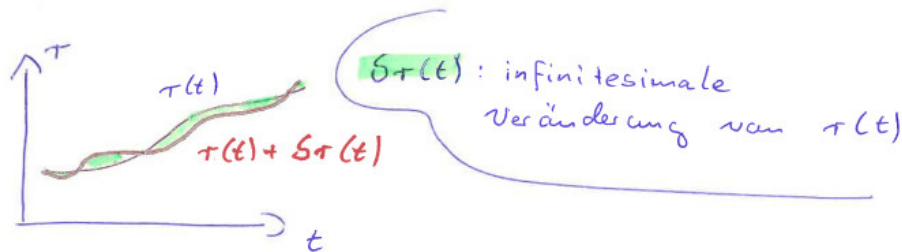 r
r(t)
r(t) + δr(t)
t
δr(t) : infinitesimale
Veränderung von r(t)